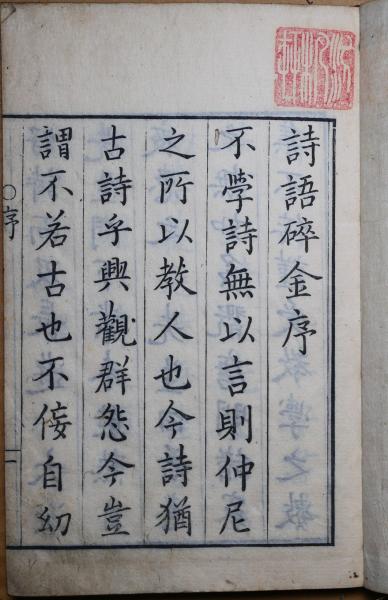 詩語碎金序
不學詩無以言則仲尼
之所以教人也今詩猶
古詩乎興觀群怨今豈
謂不若古也不侫自幼
○序
一